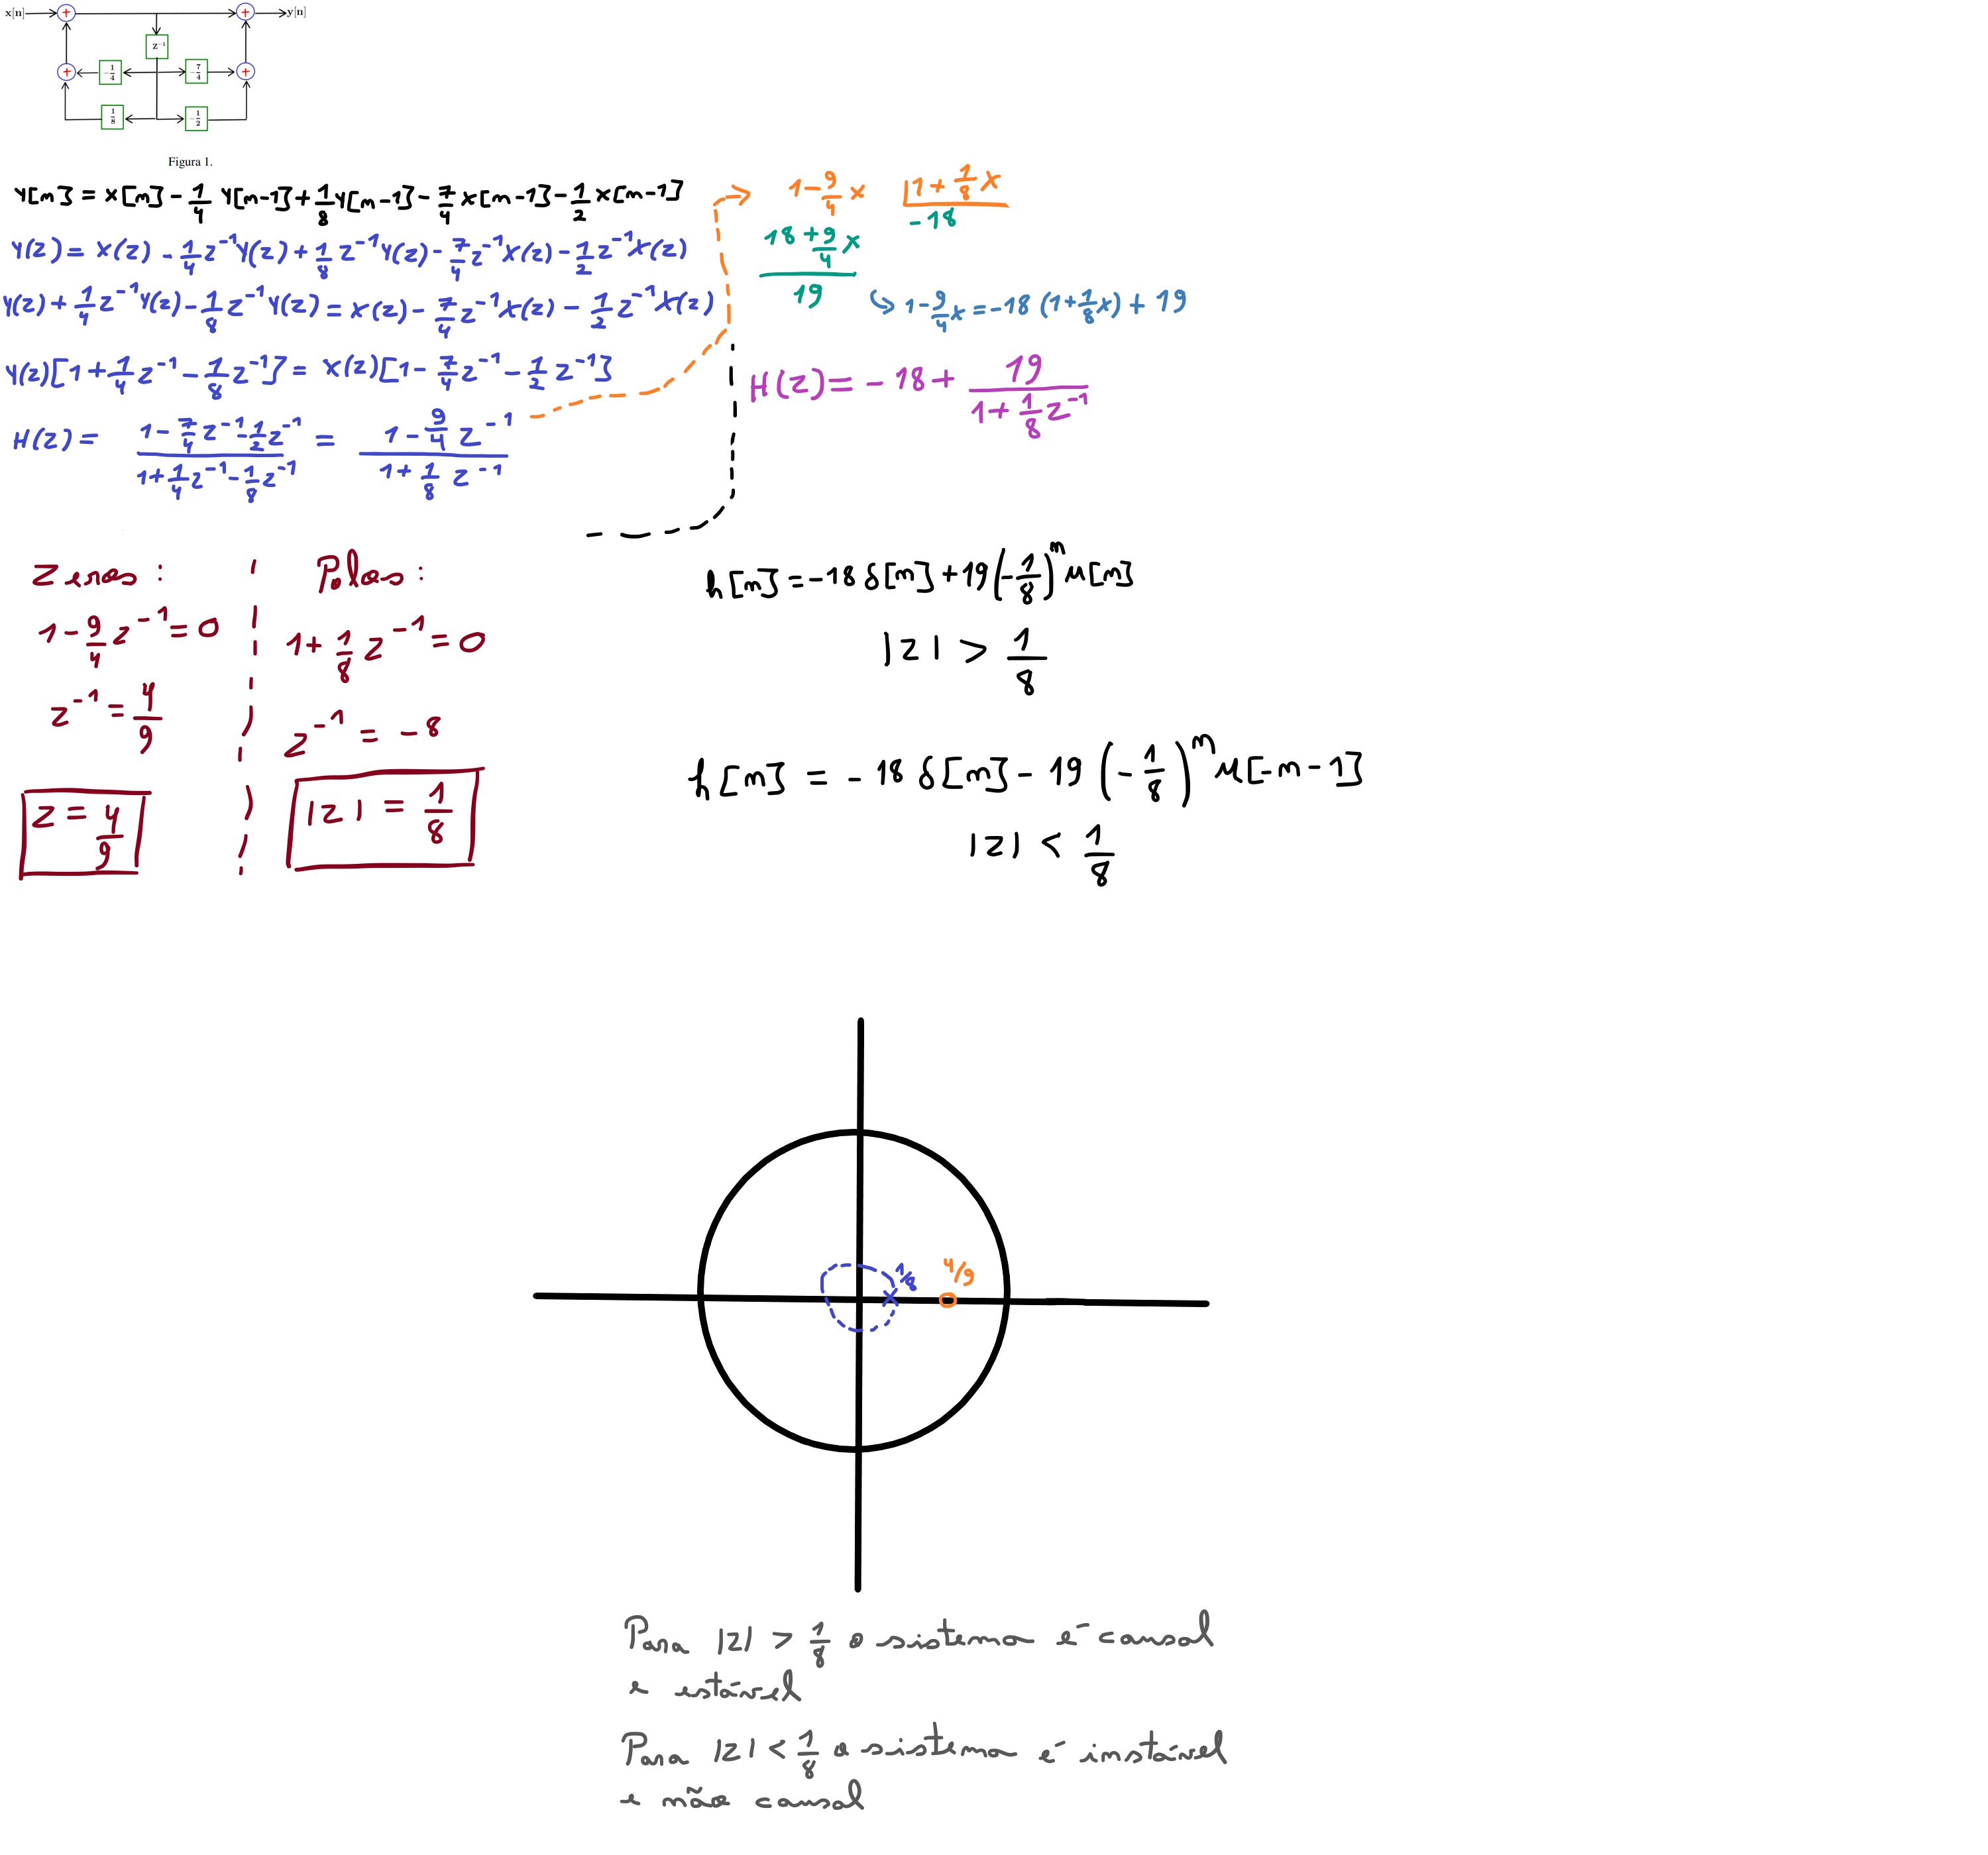 x[n] y[n]
z⁻¹
-1/4 -7/4
1/8 -1/2
Figura 1.
y[n] = x[n] - 1/4 y[n-1] + 1/8 y[n-1] - 7/4 x[n-1] - 1/2 x[n-1]
Y(z) = X(z) - 1/4 z⁻¹Y(z) + 1/8 z⁻¹Y(z) - 7/4 z⁻¹X(z) - 1/2 z⁻¹X(z)
Y(z) + 1/4 z⁻¹Y(z) - 1/8 z⁻¹Y(z) = X(z) - 7/4 z⁻¹X(z) - 1/2 z⁻¹X(z)
Y(z)[1 + 1/4 z⁻¹ - 1/8 z⁻¹] = X(z)[1 - 7/4 z⁻¹ - 1/2 z⁻¹]
H(z) = (1 - 7/4 z⁻¹ - 1/2 z⁻¹)/(1 + 1/4 z⁻¹ - 1/8 z⁻¹) = (1 - 9/4 z⁻¹)/(1 + 1/8 z⁻¹)
1 - 9/4 x |1 + 1/8 x
18 + 9/4 x -18
19
↳ 1 - 9/4 x = -18 (1 + 1/8 x) + 19
H(z) = -18 + 19/(1 + 1/8 z⁻¹)
Zeros:
1 - 9/4 z⁻¹ = 0
z⁻¹ = 4/9
z = 4/9
Polos:
1 + 1/8 z⁻¹ = 0
z⁻¹ = -8
|z| = 1/8
h[n] = -18 δ[n] + 19(-1/8)ⁿ u[n]
|z| > 1/8
h[n] = -18 δ[n] - 19(-1/8)ⁿ u[-n-1]
|z| < 1/8
1/8 4/9
Para |z| > 1/8 o sistema é causal
e estável
Para |z| < 1/8 o sistema é instável
e não causal